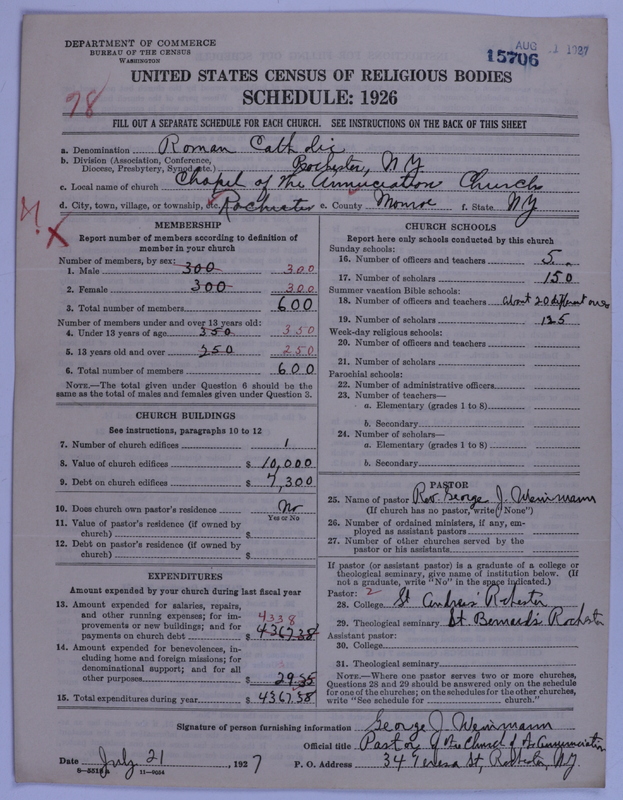 DEPARTMENT OF COMMERCE
BUREAU OF THE CENSUS
WASHINGTON
AUG 1 1927
15706
UNITED STATES CENSUS OF RELIGIOUS BODIES
SCHEDULE: 1926
78
FILL OUT A SEPARATE SCHEDULE FOR EACH CHURCH. SEE INSTRUCTIONS ON THE BACK OF THIS SHEET
a. Denomination Roman Catholic
b. Division (Association, Conference, Diocese, Presbytery, Synod, etc.) Rochester, N.Y.
c. Local name of church Chapel of the Annuciation Church
d. City, town, village, or township, etc. Rochester e. County Monroe f. State NY
X
MEMBERSHIP
Report number of members according to definition of
member in your church
Number of members, by sex:
1. Male 300 300
2. Female 300 300
3. Total number of members 600
Number of members under and over 13 years old:
4. Under 13 years of age 350 350
5. 13 years old and over 250 250
6. Total number of members 600
NOTE.—The total given under Question 6 should be
same as the total of males and females given under Question 3.
CHURCH BUILDINGS
See instructions, paragraphs 10 to 12
7. Number of church edifices 1
8. Value of church edifices $ 10,000
9. Debt on church edifices $ 7,300
10. Does church own pastor's residence No
Yes or No
11. Value of pastor's residence (if owned by
church) $
12. Debt on pastor's residence (if owned by
church) $
EXPENDITURES
Amount expended by your church during last fiscal year
13. Amount expended for salaries, repairs,
and other running expenses; for im-
provements or new buildings; and for 4338
payments on church debt $ 4367.38
14. Amount expended for benevolences, in-
cluding home and foreign missions; for
denominational support; and for all
other purposes $ 29.35
15. Total expenditures during year $ 4367.38
CHURCH SCHOOLS
Report here only schools conducted by this church
Sunday schools:
16. Number of officers and teachers 5
17. Number of scholars 150
Summer vacation Bible schools:
18. Number of officers and teachers about 20 different ones
19. Number of scholars 125
Week-day religious schools:
20. Number of officers and teachers
21. Number of scholars
Parochial schools:
22. Number of administrative officers
23. Number of teachers—
a. Elementary (grades 1 to 8)
b. Secondary
24. Number of scholars—
a. Elementary (grades 1 to 8)
b. Secondary
PASTOR
25. Name of pastor Rev. George J. Weinmann
(If church has no pastor, write "None")
26. Number of ordained ministers, if any, em-
ployed as assistant pastors
27. Number of other churches served by the
pastor or his assistants
If pastor (or assistant pastor) is a graduate of a college or
theological seminary, give name of institution below. (If
not a graduate, write "No" in the space indicated.)
Pastor: 2
28. College St Andrews Rochester
29. Theological seminary St. Bernard's Rochester
Assistant pastor:
30. College
31. Theological seminary
NOTE.—Where one pastor serves two or more churches,
Questions 28 and 29 should be answered only on the schedule
for one of the churches; on the schedules for the other churches,
write "See schedule for church."
Signature of person furnishing information George J. Weinmann
Official title Pastor of the Church of the Annunciation
Date July 21, 1927 P. O. Address 34 Teresa St, Rochester, N.Y.
11-9054